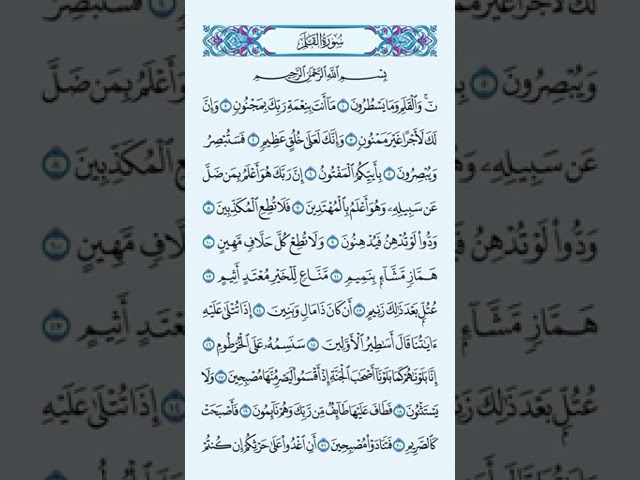 سُورَةُ القَلَمِ
بِسْمِ اللَّهِ الرَّحْمَٰنِ الرَّحِيمِ
نٓۚ وَٱلْقَلَمِ وَمَا يَسْطُرُونَ ١ مَآ أَنتَ بِنِعْمَةِ رَبِّكَ بِمَجْنُونٍ ٢ وَإِنَّ
لَكَ لَأَجْرًا غَيْرَ مَمْنُونٍ ٣ وَإِنَّكَ لَعَلَىٰ خُلُقٍ عَظِيمٍ ٤ فَسَتُبْصِرُ
وَيُبْصِرُونَ ٥ بِأَييِّكُمُ ٱلْمَفْتُونُ ٦ إِنَّ رَبَّكَ هُوَ أَعْلَمُ بِمَن ضَلَّ
عَن سَبِيلِهِۦ وَهُوَ أَعْلَمُ بِٱلْمُهْتَدِينَ ٧ فَلَا تُطِعِ ٱلْمُكَذِّبِينَ ٨
وَدُّوا۟ لَوْ تُدْهِنُ فَيُدْهِنُونَ ٩ وَلَا تُطِعْ كُلَّ حَلَّافٍ مَّهِينٍ ١٠
هَمَّازٍ مَّشَّآءٍۭ بِنَمِيمٍ ١١ مَّنَّاعٍ لِّلْخَيْرِ مُعْتَدٍ أَثِيمٍ ١٢
عُتُلٍّۭ بَعْدَ ذَٰلِكَ زَنِيمٍ ١٣ أَن كَانَ ذَا مَالٍ وَبَنِينَ ١٤ إِذَا تُتْلَىٰ عَلَيْهِ
ءَايَٰتُنَا قَالَ أَسَٰطِيرُ ٱلْأَوَّلِينَ ١٥ سَنَسِمُهُۥ عَلَى ٱلْخُرْطُومِ ١٦
إِنَّا بَلَوْنَٰهُمْ كَمَا بَلَوْنَآ أَصْحَٰبَ ٱلْجَنَّةِ إِذْ أَقْسَمُوا۟ لَيَصْرِمُنَّهَا مُصْبِحِينَ ١٧ وَلَا
يَسْتَثْنُونَ ١٨ فَطَافَ عَلَيْهَا طَآئِفٌ مِّن رَّبِّكَ وَهُمْ نَآئِمُونَ ١٩ فَأَصْبَحَتْ
كَٱلصَّرِيمِ ٢٠ فَتَنَادَوْا۟ مُصْبِحِينَ ٢١ أَنِ ٱغْدُوا۟ عَلَىٰ حَرْثِكُمْ إِن كُنتُمْ